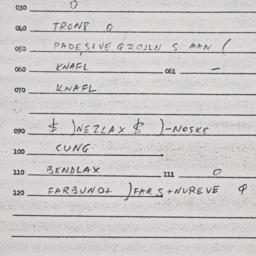 030 0
040 TRONS
050 S MAN (
060 KNAFL 061 -
070 KNAFL
090 $ )NEZLAX $ )-NOSKE
100 CUNG
110 BENDLAX 111 0
120 FARBUND+ )FARS+NUREVE